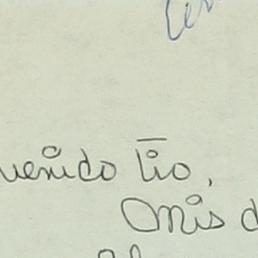 uerido tio,
Mis d